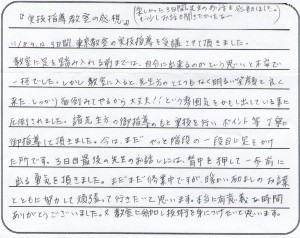 『実技指導教室の感想』
11/8,9,10 3日間 東京教室の実技指導を受講させて頂きました。
教室に足を踏み入れる前までは、自分に出来るのかという思いで不安で
一杯でした。しかし教室に入ると先生方のとても明るい笑顔と
来た。しっかり面倒みてやるから大丈夫!!という雰囲気をかもし出している事に
圧倒されました。諸先生方の御指導のもと実技を行い、ポイント等 丁寧に
御指導して頂きました。今は、まだやっと階段の一段目に足をかけ
た所です。3日目最後の先生のお話しには、背中を押して一歩前に
出る勇気を頂きました。まだまだ修業中ですが、暖かい励ましのお言葉
とともに努力して頑張って行きたいと思います。本当に有意義な時間
ありがとうございました。又教室に参加し技術を身につけたいと思います。